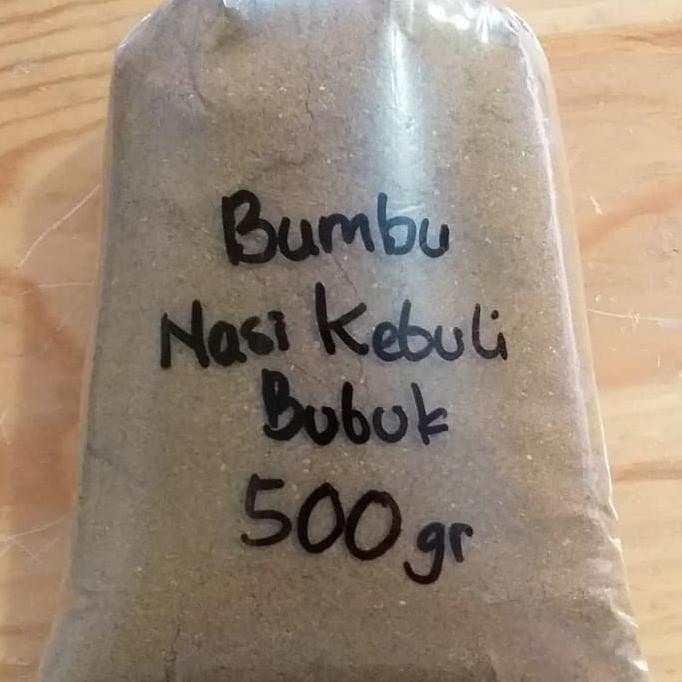 Bumbu
Nasi Kebuli
Bubuk
500 gr